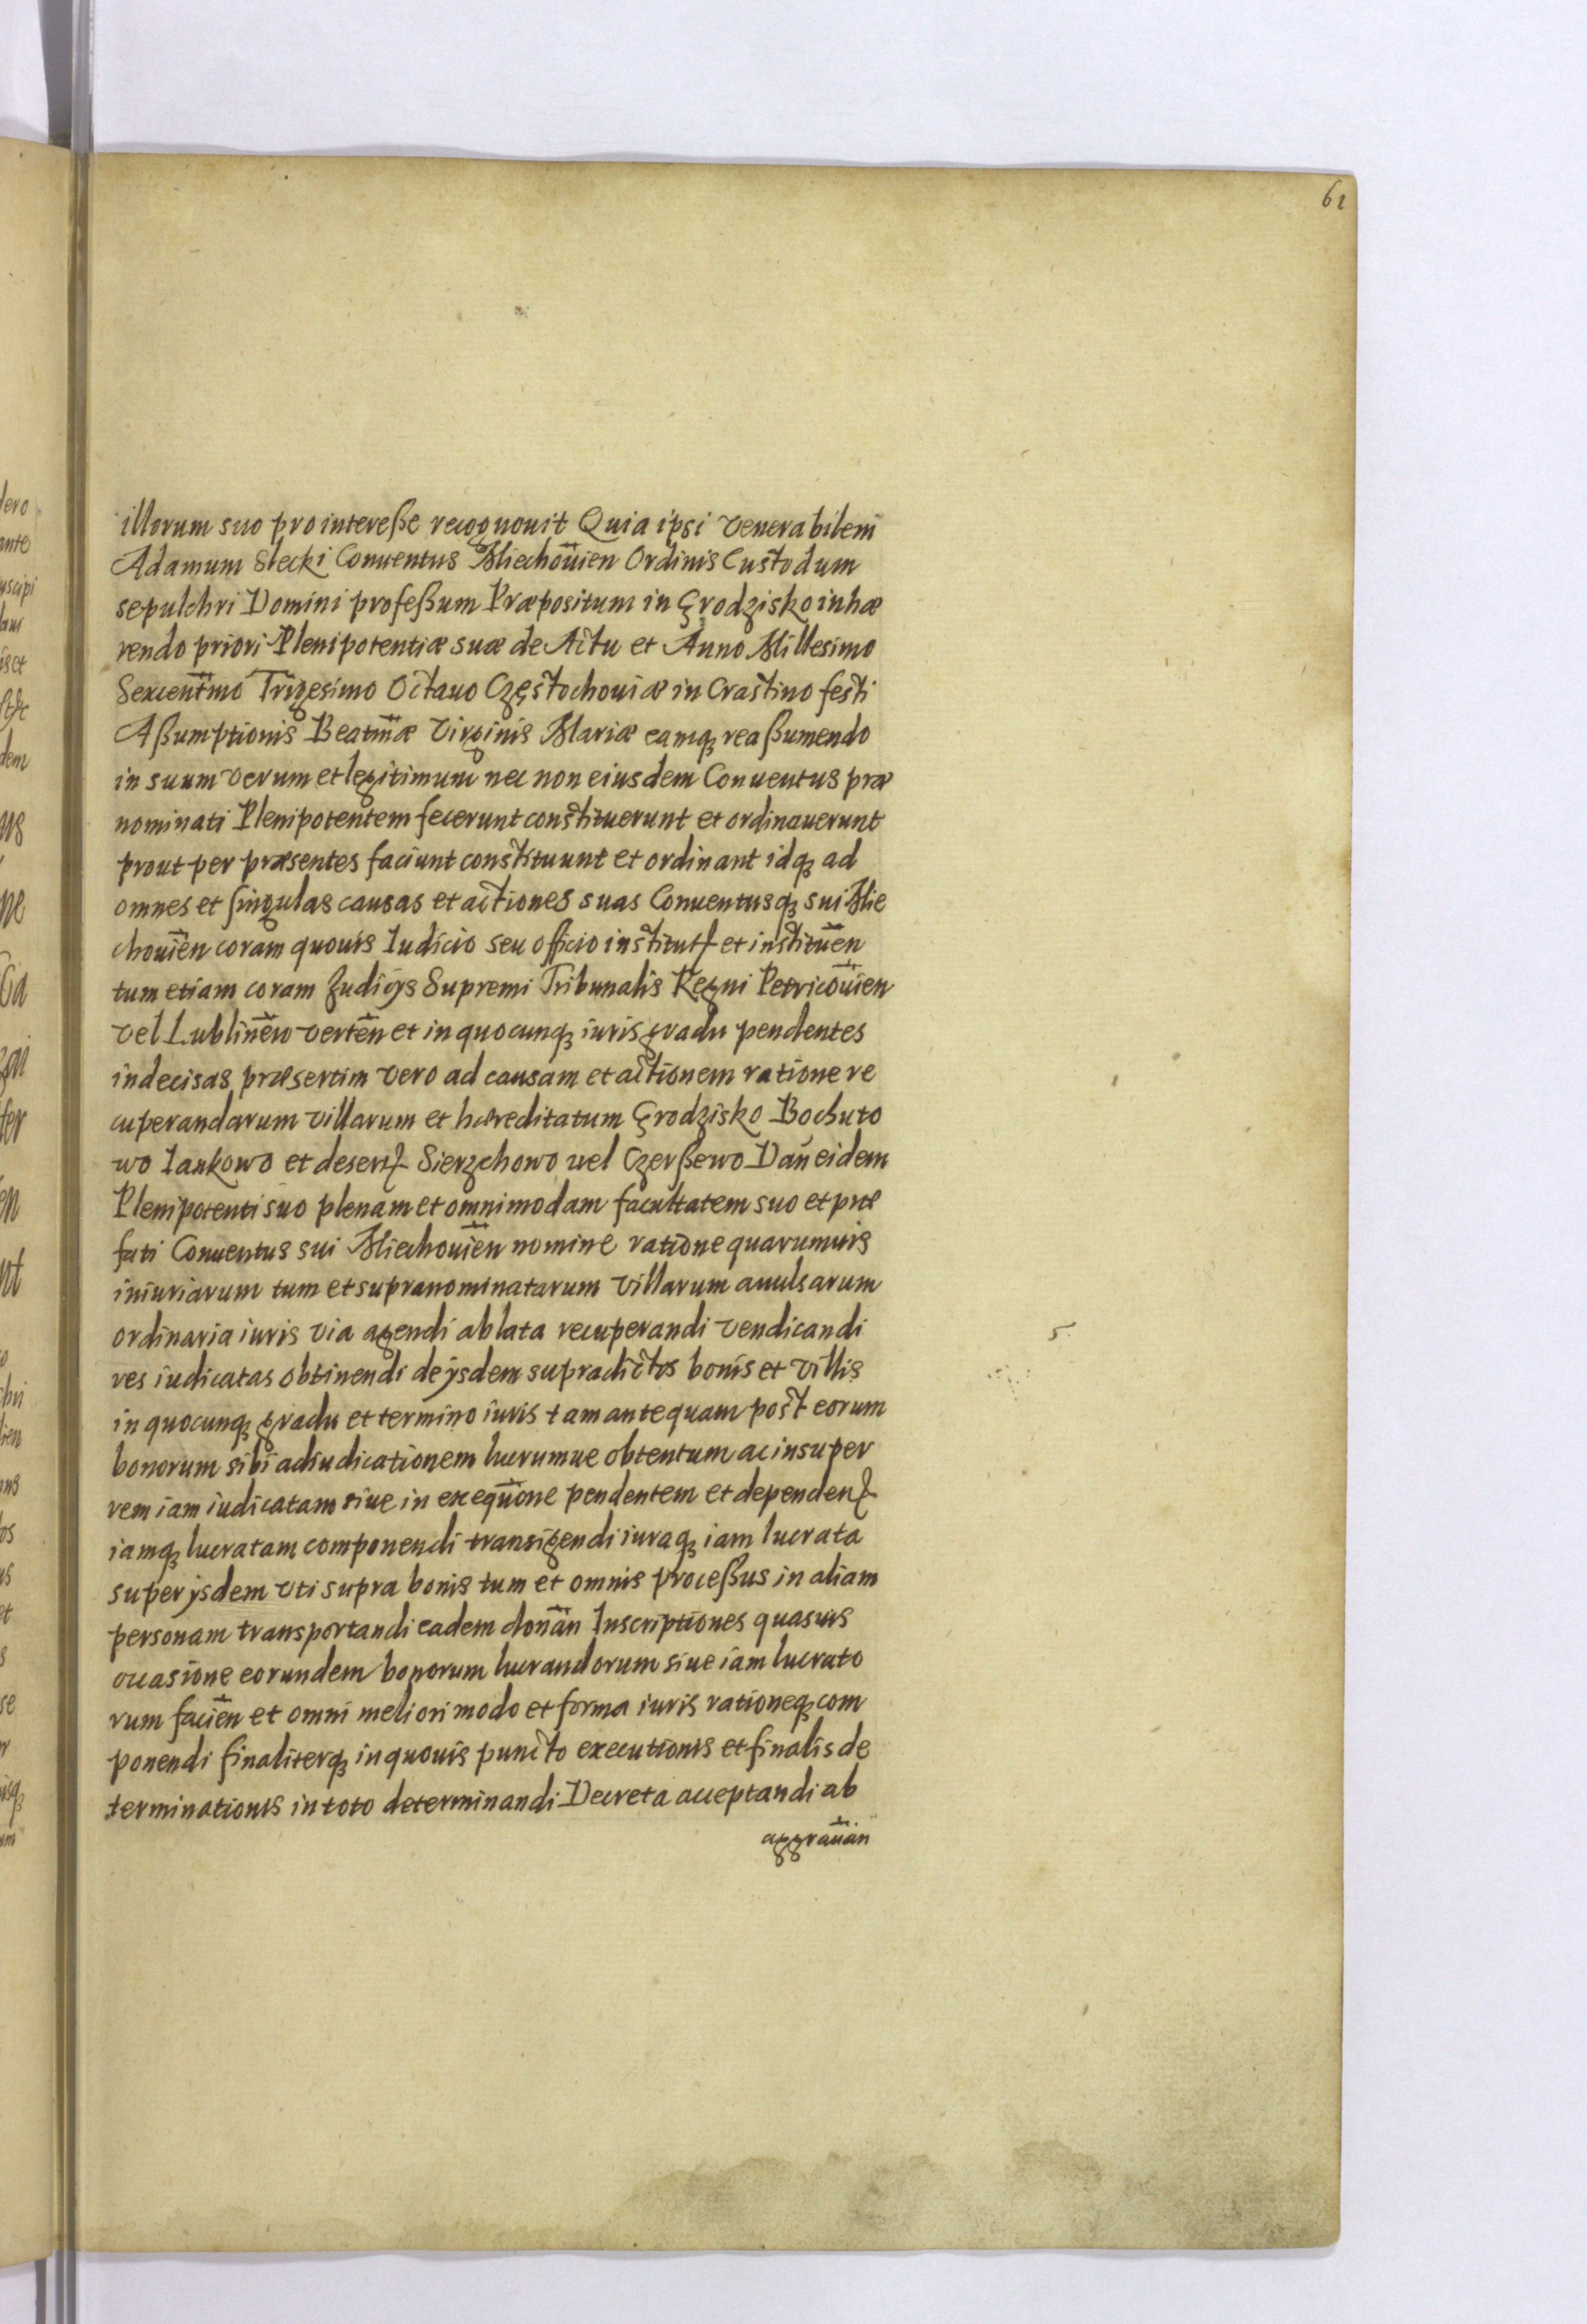 61
illorum suo pro intereße recognouit Quia ipsi venerabilem
Adamum Slecki Conuentus Miechouien Ordinis Custodum
sepulchri Domini profeßum Præpositum in Grodzisko inhæ
rendo priori Plenipotentiæ suæ de Actu et Anno Millesimo
Sexcentmo Trigesimo Octauo Częstochouiæ in Crastino festi
Aßumptionis Beatmæ Virginis Mariæ eamq reaßumendo
in suum verum et legitimum nec non eiusdem Conuentus præ
nominati Plenipotentem fecerunt constituerunt et ordinauerunt
prout per præsentes faciunt constituunt et ordinant idq ad
omnes et singulas causas et actiones suas Conuentusq sui Mie
chouien coram quouis Iudicio seu officio institut et instituen
tum etiam coram Iudicijs Supremi Tribunalis Regni Petricouien
vel Lublinen verten et in quocunq iuris gradu pendentes
indecisas præsertim vero ad causam et actionem ratione re
cuperandarum villarum et hæreditatum Grodzisko Bochuto
wo Iankowo et desert Sierzchowo vel Czerßewo Dan eidem
Plenipotenti suo plenam et omnimodam facultatem suo et præ
fati Conuentus sui Miechouien nomine ratione quarumuis
iniuriarum tum et supranominatarum villarum auulsarum
ordinaria iuris via agendi ablata recuperandi vendicandi
res iudicatas obtinendi de ijsdem supradictis bonis et villis
in quocunq gradu et termino iuris tam antequam post eorum
bonorum sibi adiudicationem lucrumue obtentum ac insuper
rem iam iudicatam siue in exequone pendentem et dependen
iamq lucratam componendi transigendi iuraq iam lucrata
super ijsdem vti supra bonis tum et omnis proceßus in aliam
personam transportandi eadem donan Inscriptiones quasuis
occasione eorundem bonorum lucrandorum siue iam lucrato
rum facien et omni meliori modo et forma iuris rationeq com
ponendi finaliterq in quouis puncto executionis et finalis de
terminationis in toto determinandi Decreta acceptandi ab
aggrauan